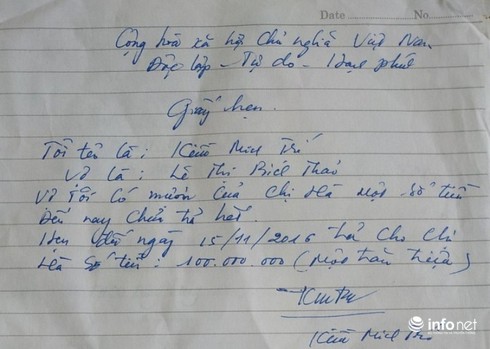 Date No.
Cộng hòa xã hội Chủ nghĩa Việt Nam
Độc lập - Tự do - Hạnh phúc
Giấy hẹn.
Tôi tên là: Kiều Minh Trí
Vợ là: Lê Thị Bích Thảo
Vợ tôi có mượn của chị Hà một số tiền
Đến nay chưa trả hết.
Hẹn đến ngày 15/11/2016 trả cho chị
Hà số tiền: 100.000.000 (một trăm triệu)
Kiều Minh Trí
infonet